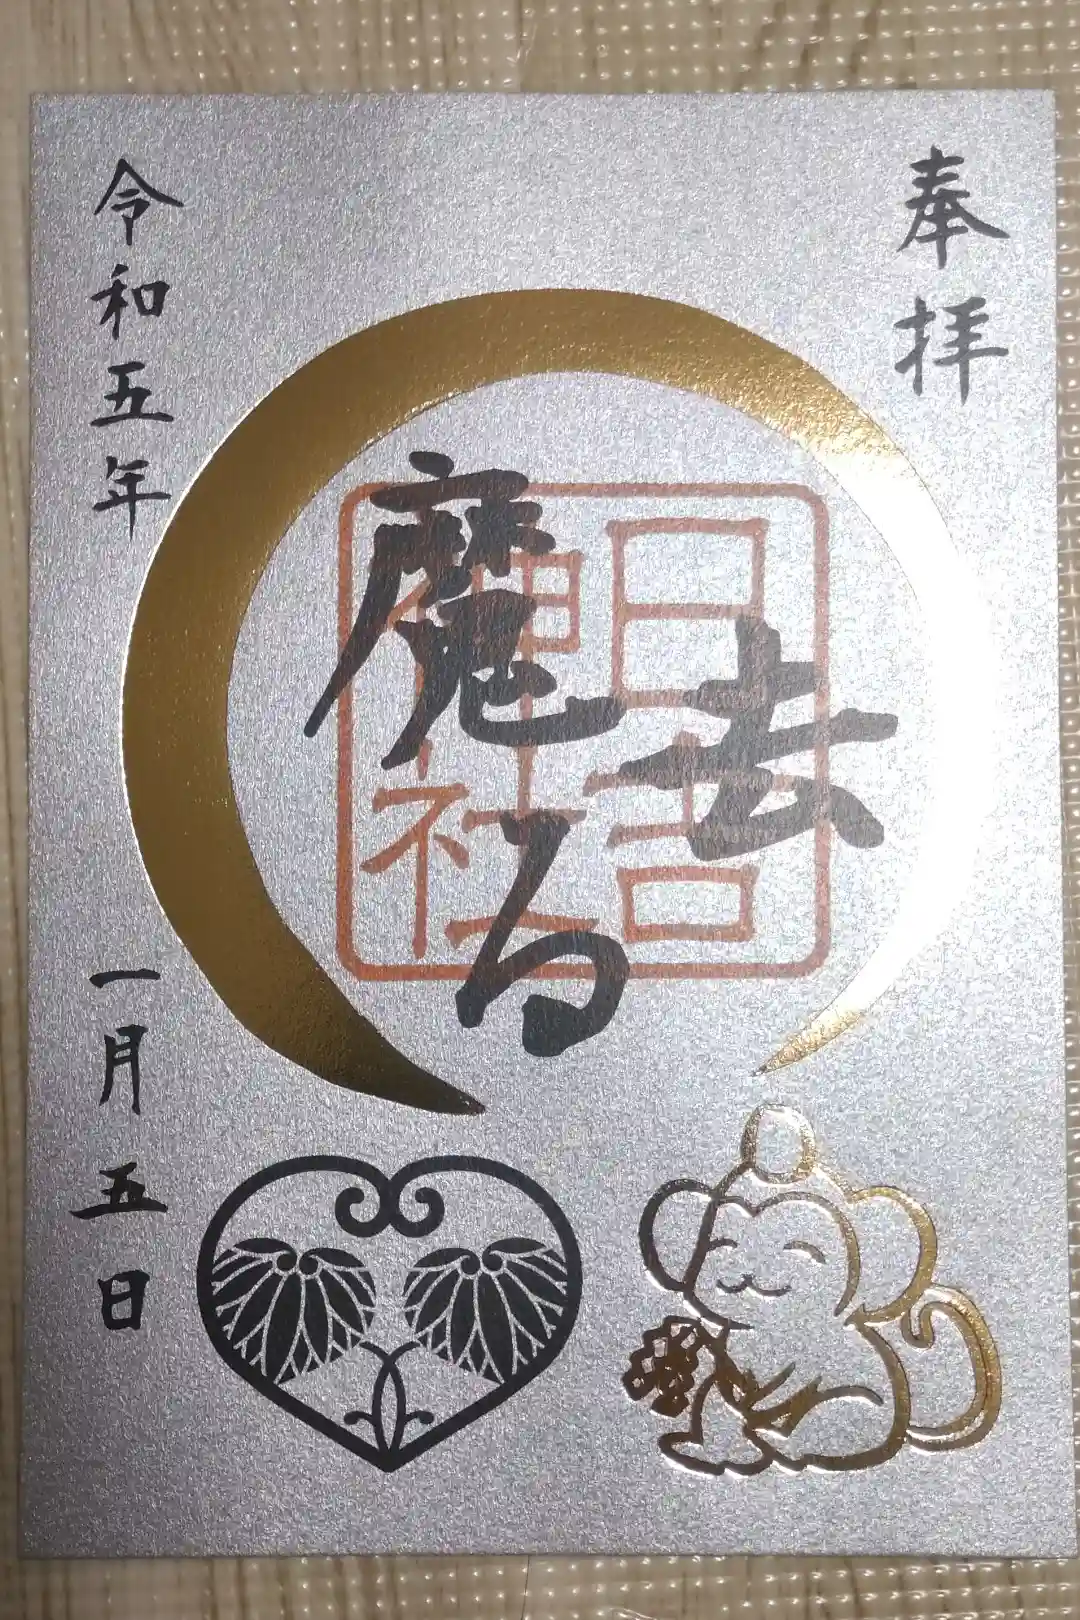 奉拝
日吉
神社
魔去る
令和五年
一月五日